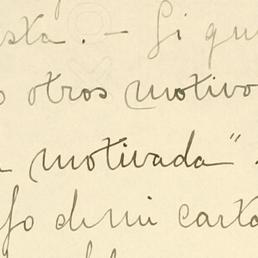 sta. - Si qu
otros motivo
a motivada".
fo de mi carta